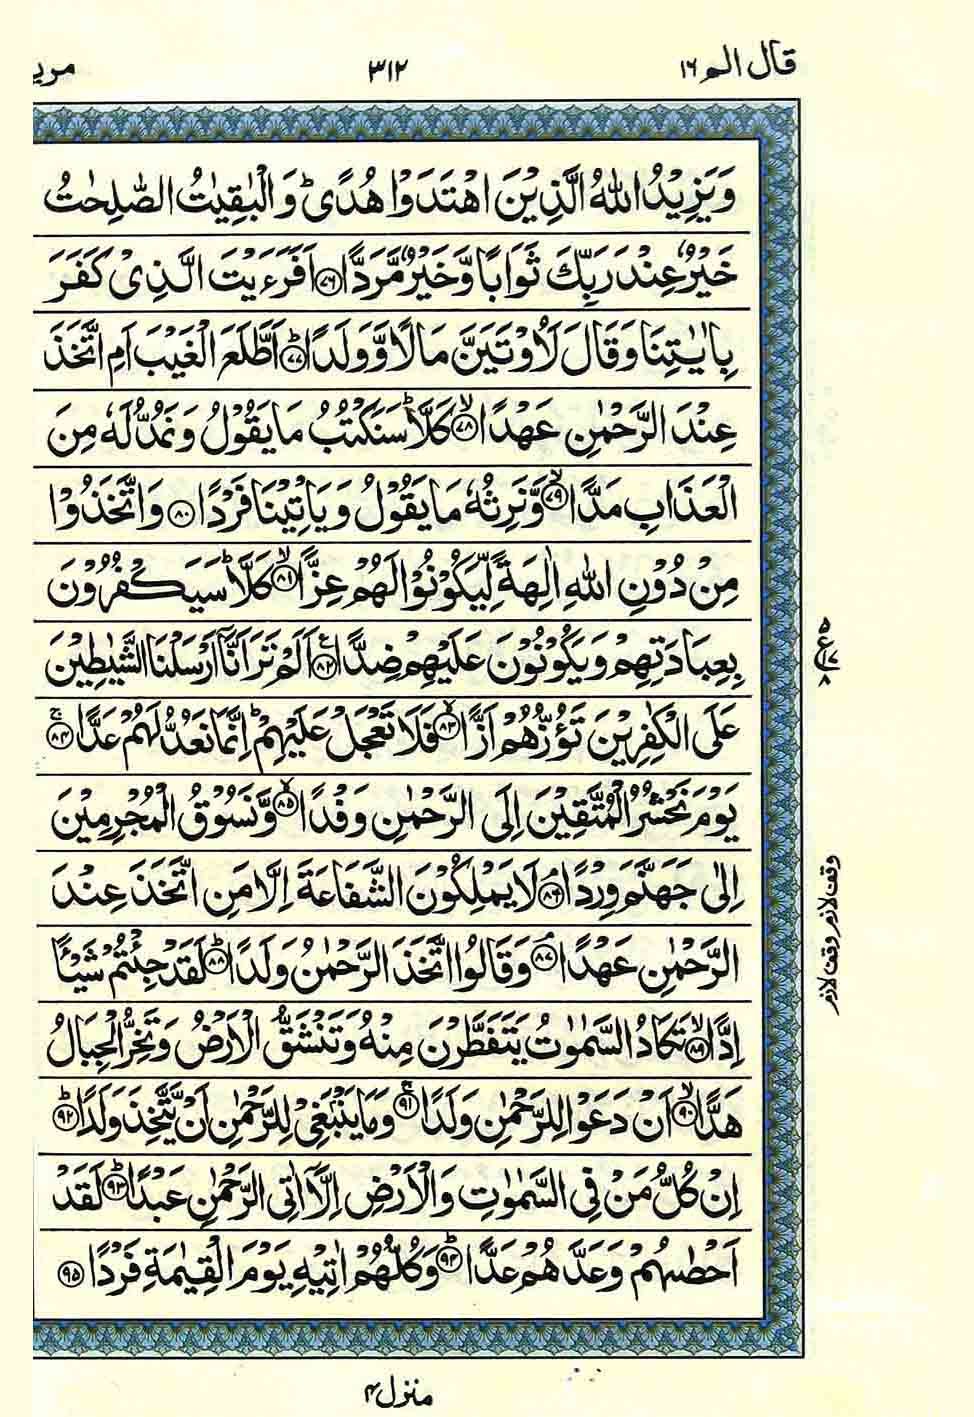 قال الم ١٦
٣١٢
مري
وَيَزِيْدُ اللّٰهُ الَّذِيْنَ اهْتَدَوْا هُدًى ؕ وَالْبٰقِيٰتُ الصّٰلِحٰتُ
خَيْرٌ عِنْدَ رَبِّكَ ثَوَابًا وَّخَيْرٌ مَّرَدًّا ﴿۷۶﴾ اَفَرَءَيْتَ الَّذِىْ كَفَرَ
بِاٰيٰتِنَا وَقَالَ لَاُوْتَيَنَّ مَالًا وَّوَلَدًا ؕ﴿۷۷﴾ اَطَّلَعَ الْغَيْبَ اَمِ اتَّخَذَ
عِنْدَ الرَّحْمٰنِ عَهْدًا ۙ﴿۷۸﴾ كَلَّا ؕ سَنَكْتُبُ مَا يَقُوْلُ وَنَمُدُّ لَهٗ مِنَ
الْعَذَابِ مَدًّا ۙ﴿۷۹﴾ وَّنَرِثُهٗ مَا يَقُوْلُ وَيَاْتِيْنَا فَرْدًا ﴿۸۰﴾ وَاتَّخَذُوْا
مِنْ دُوْنِ اللّٰهِ اٰلِهَةً لِّيَكُوْنُوْا لَهُمْ عِزًّا ۙ﴿۸۱﴾ كَلَّا ؕ سَيَكْفُرُوْنَ
بِعِبَادَتِهِمْ وَيَكُوْنُوْنَ عَلَيْهِمْ ضِدًّا ﴿۸۲﴾ ع اَلَمْ تَرَ اَنَّاۤ اَرْسَلْنَا الشَّيٰطِيْنَ
۵ ع ۱۷ ۸
عَلَى الْكٰفِرِيْنَ تَؤُزُّهُمْ اَزًّا ۙ﴿۸۳﴾ فَلَا تَعْجَلْ عَلَيْهِمْ ؕ اِنَّمَا نَعُدُّ لَهُمْ عَدًّا ۚ﴿۸۴﴾
يَوْمَ نَحْشُرُ الْمُتَّقِيْنَ اِلَى الرَّحْمٰنِ وَفْدًا ۙ﴿۸۵﴾ وَّنَسُوْقُ الْمُجْرِمِيْنَ
اِلٰى جَهَنَّمَ وِرْدًا ۘ﴿۸۶﴾ لَا يَمْلِكُوْنَ الشَّفَاعَةَ اِلَّا مَنِ اتَّخَذَ عِنْدَ
وقف لازم وقف لازم
الرَّحْمٰنِ عَهْدًا ۘ﴿۸۷﴾ وَقَالُوا اتَّخَذَ الرَّحْمٰنُ وَلَدًا ؕ﴿۸۸﴾ لَقَدْ جِئْتُمْ شَيْـًٔا
اِدًّا ۙ﴿۸۹﴾ تَكَادُ السَّمٰوٰتُ يَتَفَطَّرْنَ مِنْهُ وَتَنْشَقُّ الْاَرْضُ وَتَخِرُّ الْجِبَالُ
هَدًّا ۙ﴿۹۰﴾ اَنْ دَعَوْا لِلرَّحْمٰنِ وَلَدًا ۚ﴿۹۱﴾ وَمَا يَنْۢبَغِىْ لِلرَّحْمٰنِ اَنْ يَّتَّخِذَ وَلَدًا ؕ﴿۹۲﴾
اِنْ كُلُّ مَنْ فِى السَّمٰوٰتِ وَالْاَرْضِ اِلَّاۤ اٰتِى الرَّحْمٰنِ عَبْدًا ؕ﴿۹۳﴾ لَقَدْ
اَحْصٰىهُمْ وَعَدَّهُمْ عَدًّا ؕ﴿۹۴﴾ وَكُلُّهُمْ اٰتِيْهِ يَوْمَ الْقِيٰمَةِ فَرْدًا ﴿۹۵﴾
منزل ۴